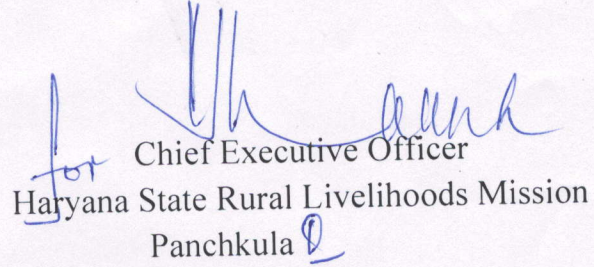 for Chief Executive Officer
Haryana State Rural Livelihoods Mission
Panchkula